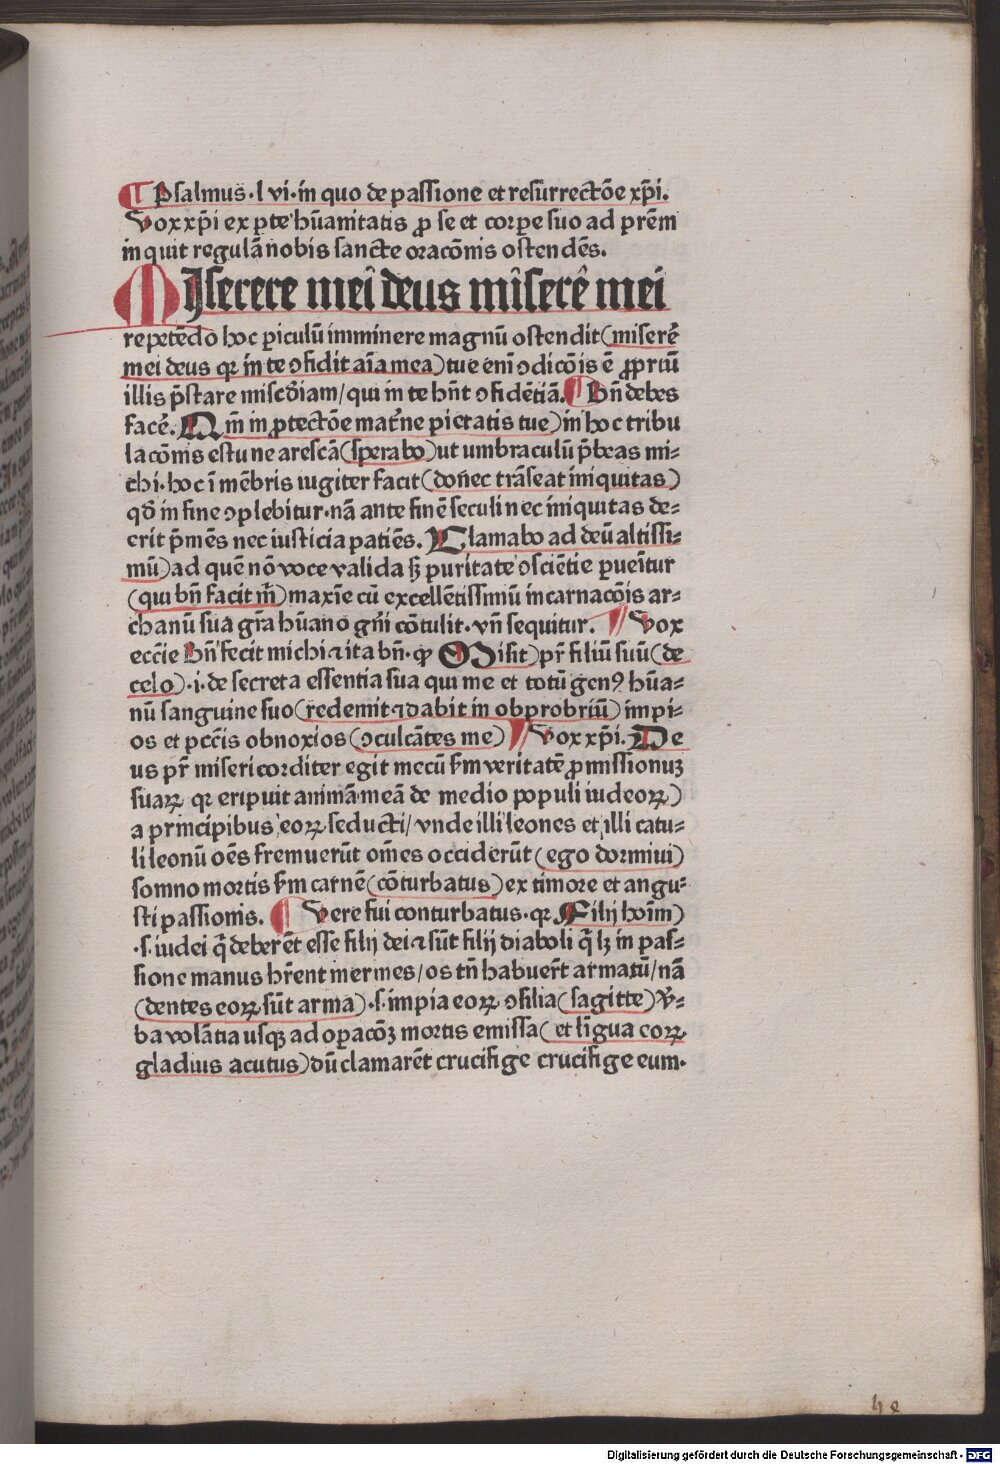 ¶ Psalmus · lvi · in quo de passione et resurrectōe xp̄i.
Vox xp̄i ex ꝑte hūanitatis ꝓ se et corpe suo ad prēm
inquit regulā nobis sancte oracōnis ostendēs.
MIserere mei deus miserē mei
repetēdo hoc periculū imminere magnū ostendit (miserē
mei deus qr in te ↄfidit aīa mea) tue enī ↄdicōis ē ꝓpriū
illis p̄stare misc̄diam / qui in te hn̄t ↄfidētiā. ¶ Bn̄ debes
facē. Nā in ꝓtectōe mat̄ne pietatis tue) in hoc tribu
lacōnis estu ne arescā (sperabo) ut umbraculū p̄beas mi-
chi · hoc ī mēbris iugiter facit (donec trāseat iniquitas)
qd̄ in fine ↄplebitur · nā ante finē seculi nec iniquitas de-
erit p̄mēs nec iusticia patiēs. Clamabo ad deū altissi-
mū) ad quē nō voce valida sꝫ puritate ↄsciētie ꝑuenitur
(qui bn̄ facit m̄) maxīe cū excellētissimū incarnacōis ar-
chanū sua gr̄a hūano gn̄i cōtulit · vn̄ sequitur. ¶ Vox
eccīe Bn̄ fecit michi ⁊ ita bn̄ · ꝙ Misit) pr̄ filiū suū (de
celo) · i · de secreta essentia sua qui me et totū genꝰ hūa-
nū sanguine suo (redemit ⁊ dabit in obprobriū) impi-
os et pcc̄is obnoxios (ↄculcātes me) ¶ Vox xp̄i. De
us pr̄ misericorditer egit mecū s̄m veritatē ꝓmissionuꝫ
suaꝝ qr eripuit animā meā de medio populi iudeoꝝ)
a principibus eoꝝ seducti / vnde illi leones et illi catu-
li leonū oēs fremuerūt om̄es occiderūt (ego dormiui)
somno mortis s̄m carnē (cōturbatus) ex timore et angu-
sti passionis. ¶ Vere fui conturbatus · qr Filij hoīm)
· s · iudei q̄ deberēt esse filij dei ⁊ sūt filij diaboli q̄ lꝫ in pas-
sione manus hr̄ent inermes / os tn̄ habuer̄t armatū / nā
(dentes eoꝝ sūt arma) · s · impia eoꝝ ↄsilia (sagitte) v̄-
ba volātia usqꝫ ad oꝑacōꝫ mortis emissa (et līgua eoꝝ
gladius acutus) dū clamarēt crucifige crucifige eum.
Digitalisierung gefördert durch die Deutsche Forschungsgemeinschaft - DFG